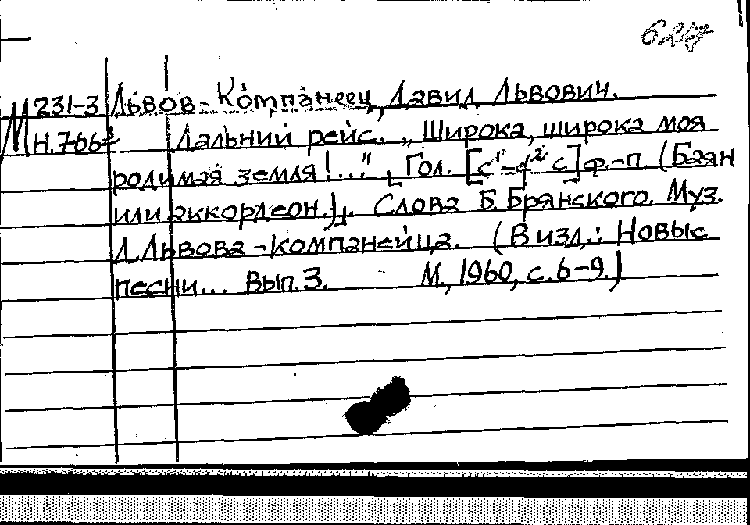 М 231-3 Львов-Компанеец, Давид Львович.
Н.766 Дальний рейс. „Широка, широка моя
родимая земля!..." [Гол. [c¹-f² c] ф.-п. (Баян
или аккордеон.)]. Слова Б. Брянского. Муз.
Д. Львова-Компанейца. (В изд.: Новые
песни... Вып. 3. М., 1960, с. 6-9.)